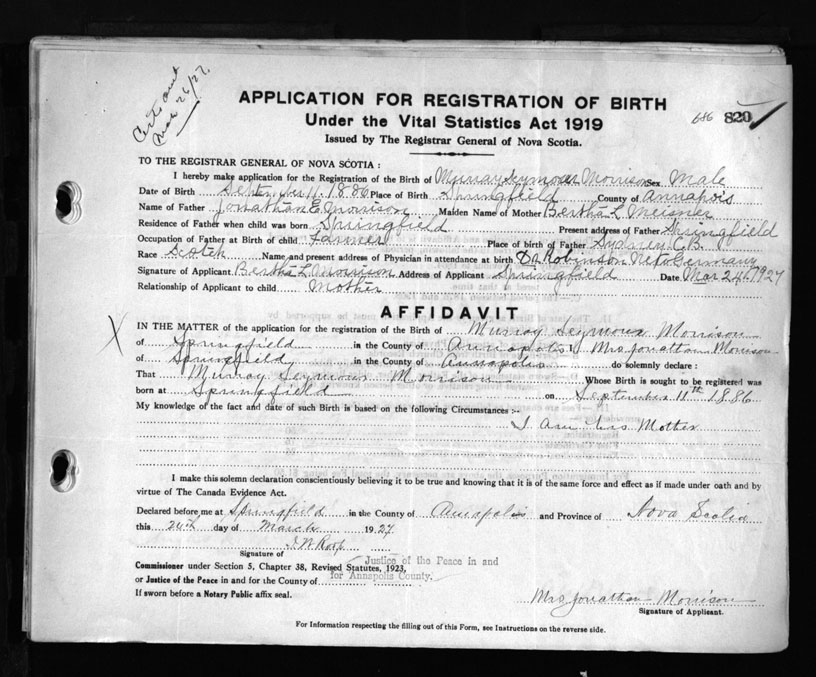 Cert. out
Mar 26/27.
APPLICATION FOR REGISTRATION OF BIRTH
Under the Vital Statistics Act 1919
686 820
Issued by The Registrar General of Nova Scotia.
TO THE REGISTRAR GENERAL OF NOVA SCOTIA :
I hereby make application for the Registration of the Birth of Murray Seymour Morrison Sex Male
Date of Birth September 11. 1886 Place of Birth Springfield County of Annapolis
Name of Father Jonathan E. Morrison Maiden Name of Mother Bertha L Meisner
Residence of Father when child was born Springfield Present address of Father Springfield
Occupation of Father at Birth of child Farmer Place of birth of Father Sydney C.B.
Race Scotch Name and present address of Physician in attendance at birth Dr Robinson New Germany
Signature of Applicant Bertha L Morrison Address of Applicant Springfield Date Mar 24. 1927
Relationship of Applicant to child Mother
AFFIDAVIT
X
IN THE MATTER of the application for the registration of the Birth of Murray Seymour Morrison
of Springfield in the County of Annapolis I, Mrs Jonathan Morrison
of Springfield in the County of Annapolis do solemnly declare :
That Murray Seymour Morrison Whose Birth is sought to be registered was
born at Springfield on September 11th 1886
My knowledge of the fact and date of such Birth is based on the following Circumstances :-
I am his Mother
I make this solemn declaration conscientiously believing it to be true and knowing that it is of the same force and effect as if made under oath and by
virtue of The Canada Evidence Act.
Declared before me at Springfield in the County of Annapolis and Province of Nova Scotia
this 24th day of March 1927
J. W. Roop
Signature of
Justice of the Peace in and
Commissioner under Section 5, Chapter 38, Revised Statutes, 1923,
for Annapolis County.
or Justice of the Peace in and for the County of
If sworn before a Notary Public affix seal.
Mrs Jonathan Morrison
Signature of Applicant.
For Information respecting the filling out of this Form, see Instructions on the reverse side.